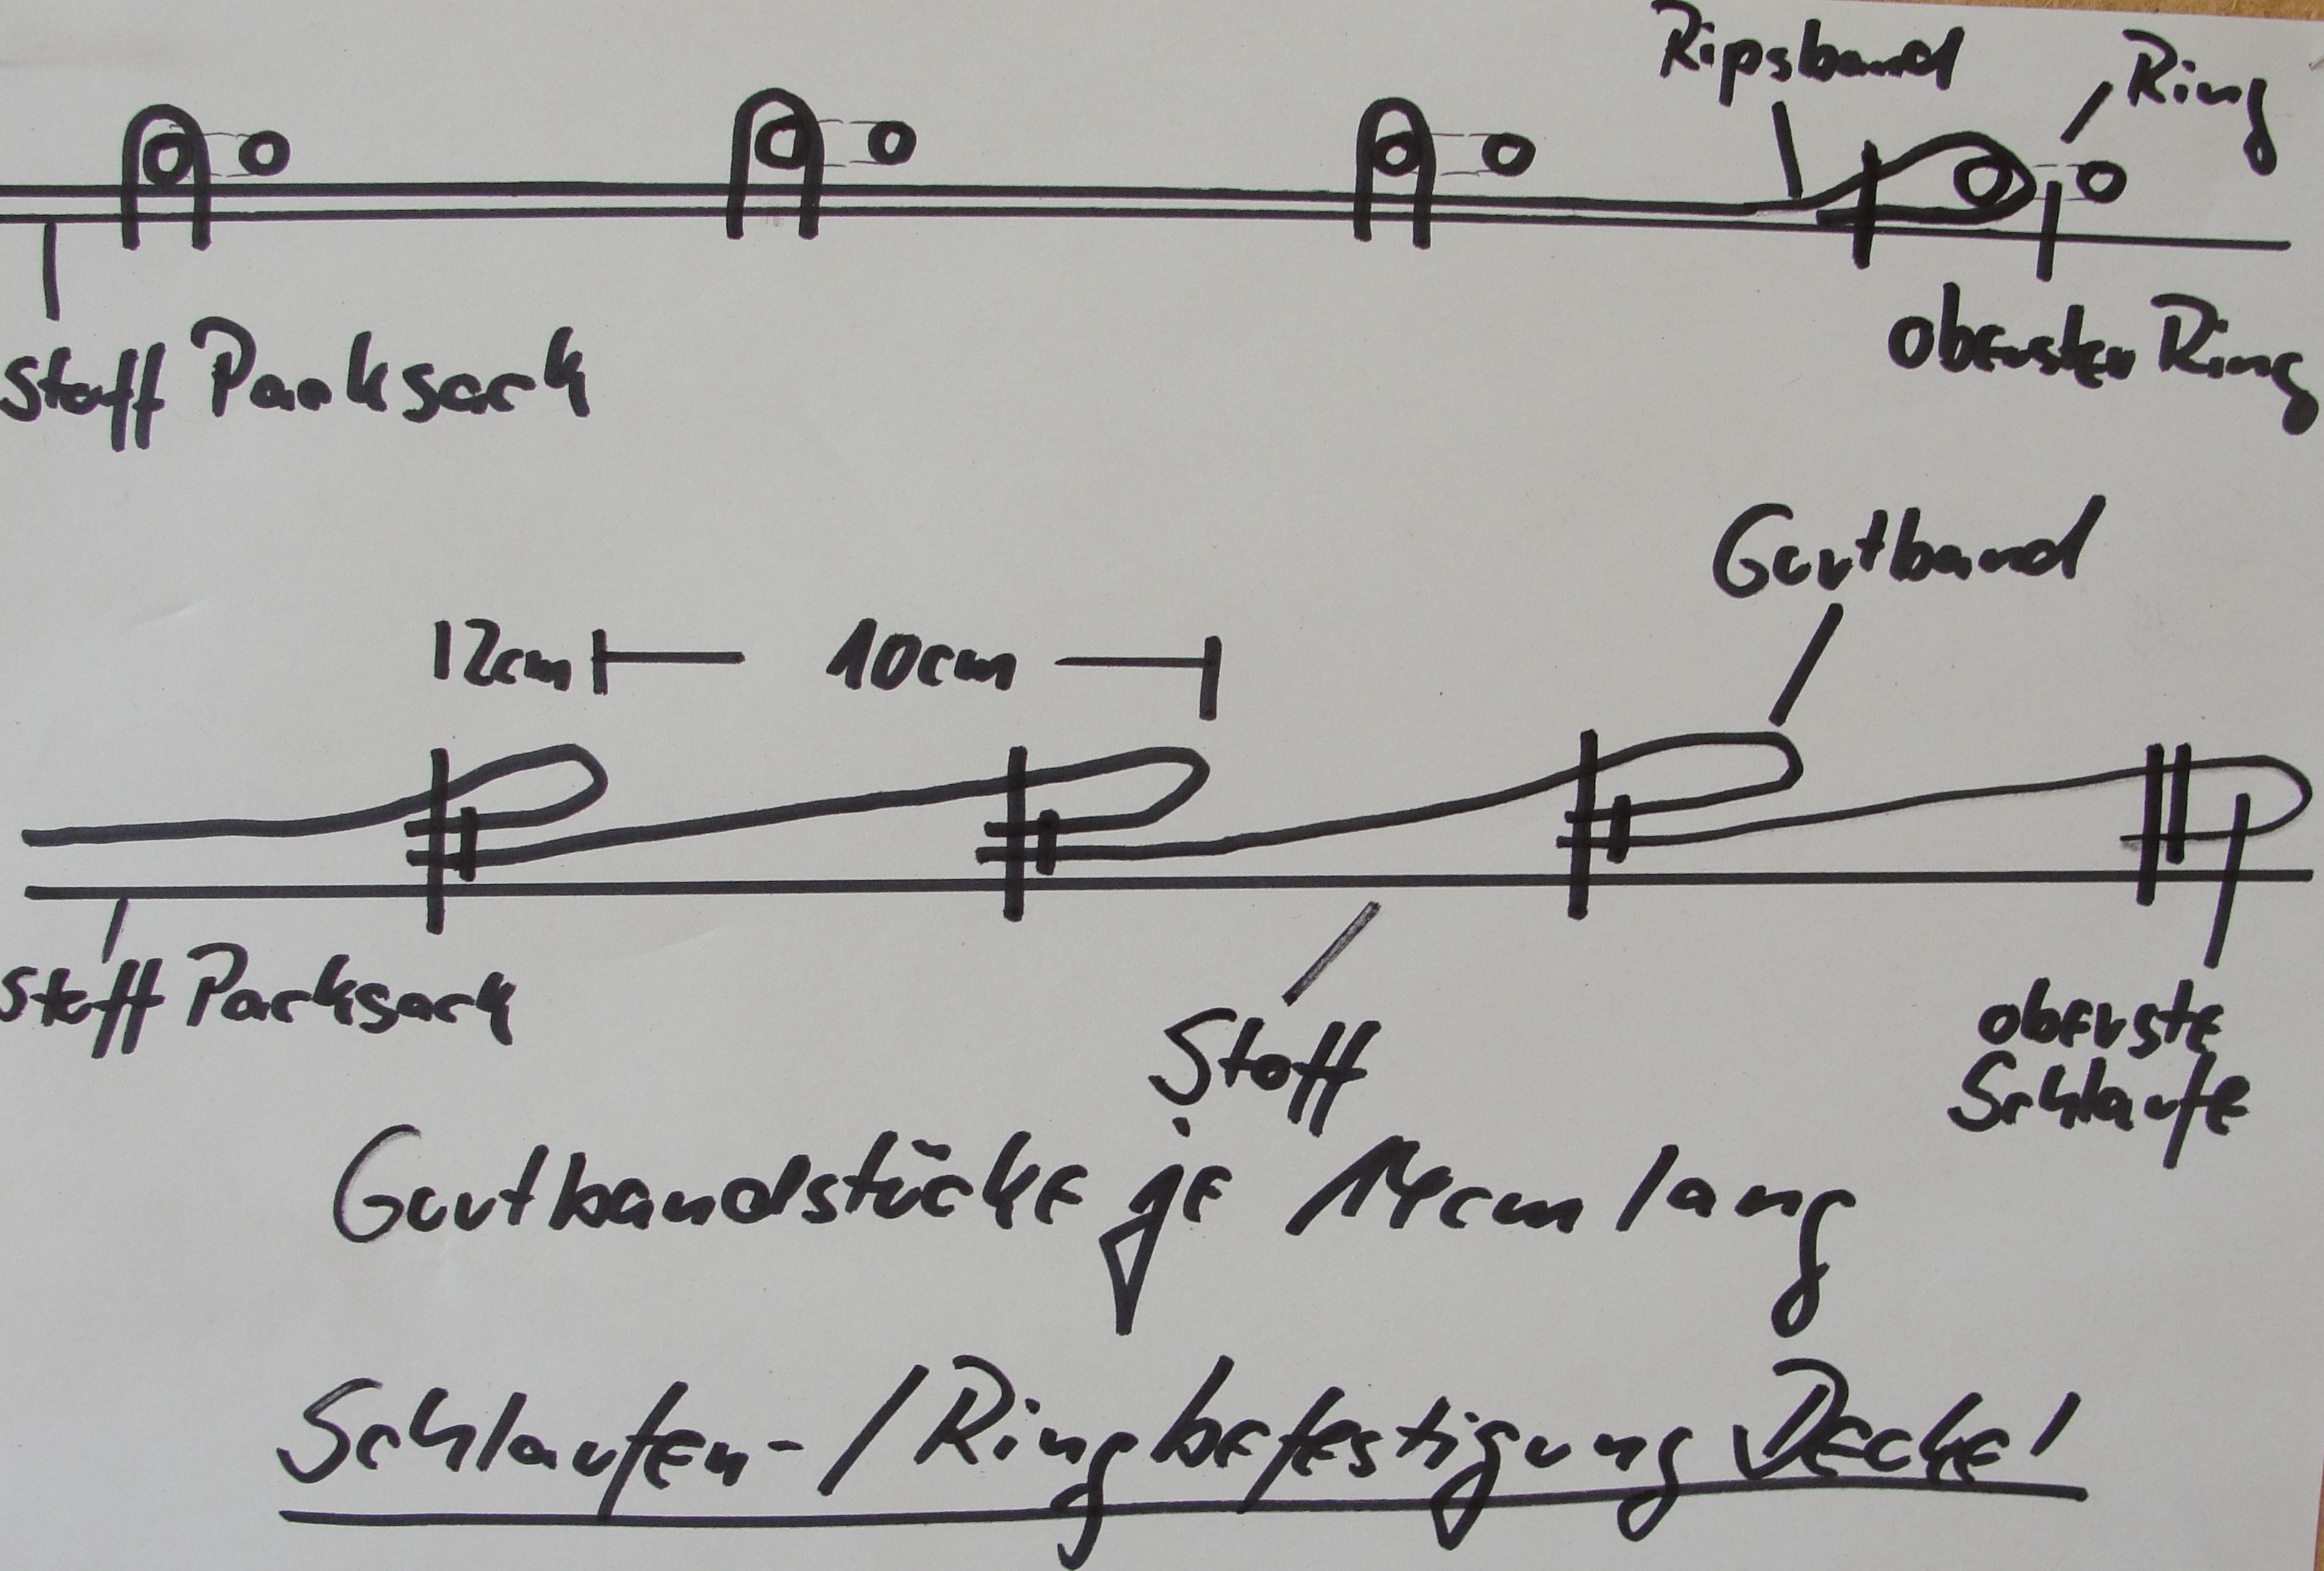 Ripsband
Ring
Stoff Packsack
oberster Ring
Gurtband
12cm
10cm
Stoff Packsack
Stoff
oberste
Schlaufe
Gurtbandstücke je 14cm lang
Schlaufen-/Ringbefestigung Deckel